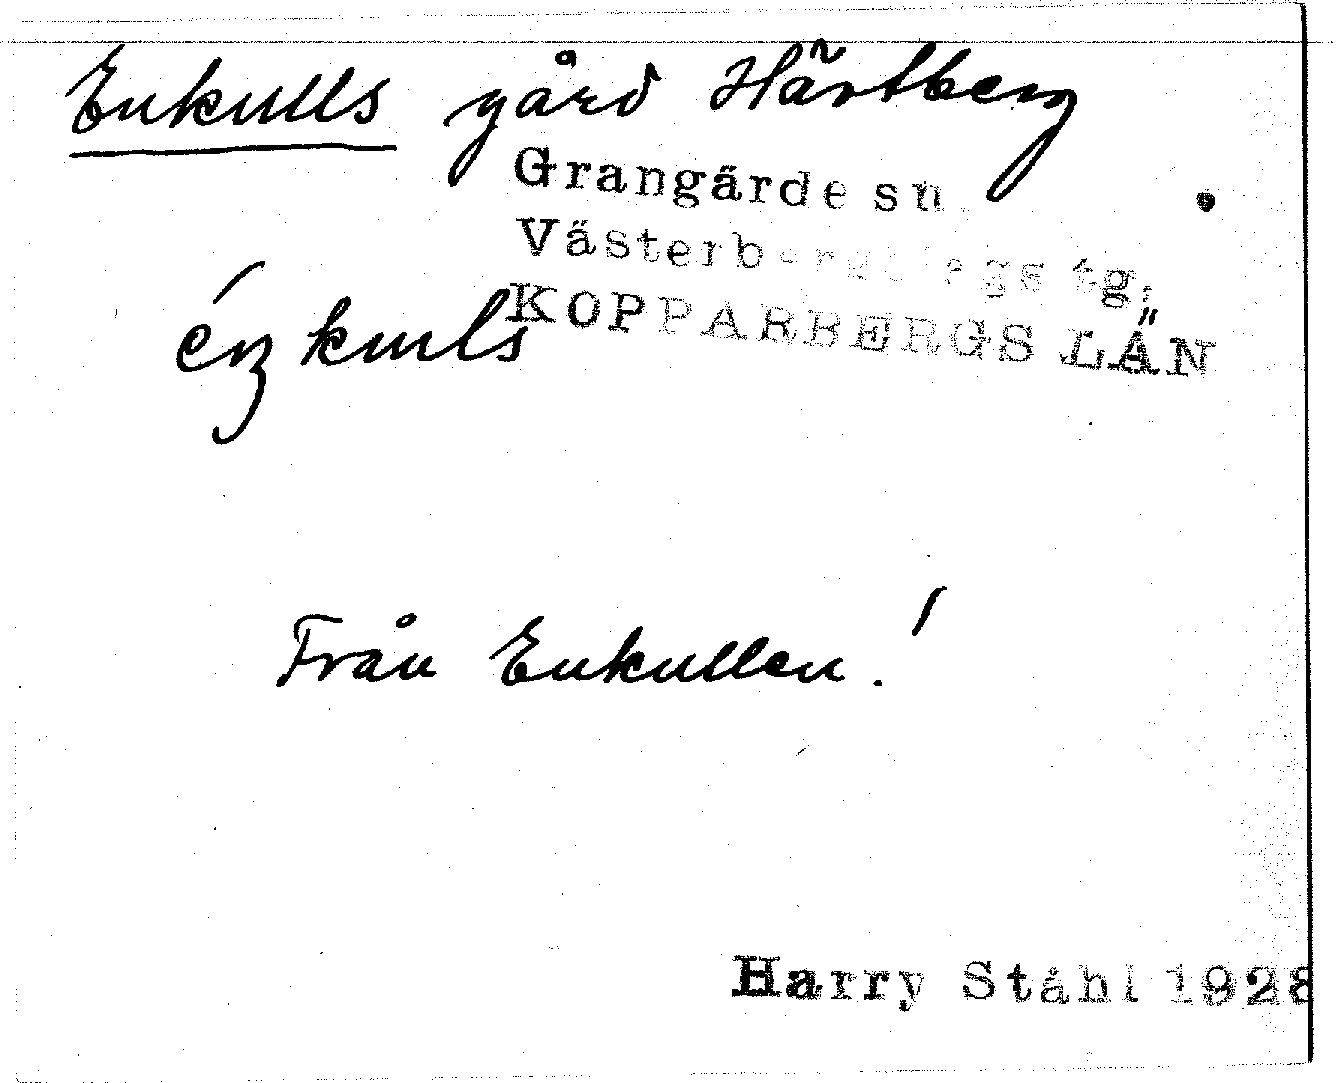 Enkulls gård Hävtberg
Grangärde sn.
Västerbergslags tg.
KOPPARBERGS LÄN
éŋkuls
Från Enkullen!
Harry Ståhl 1928